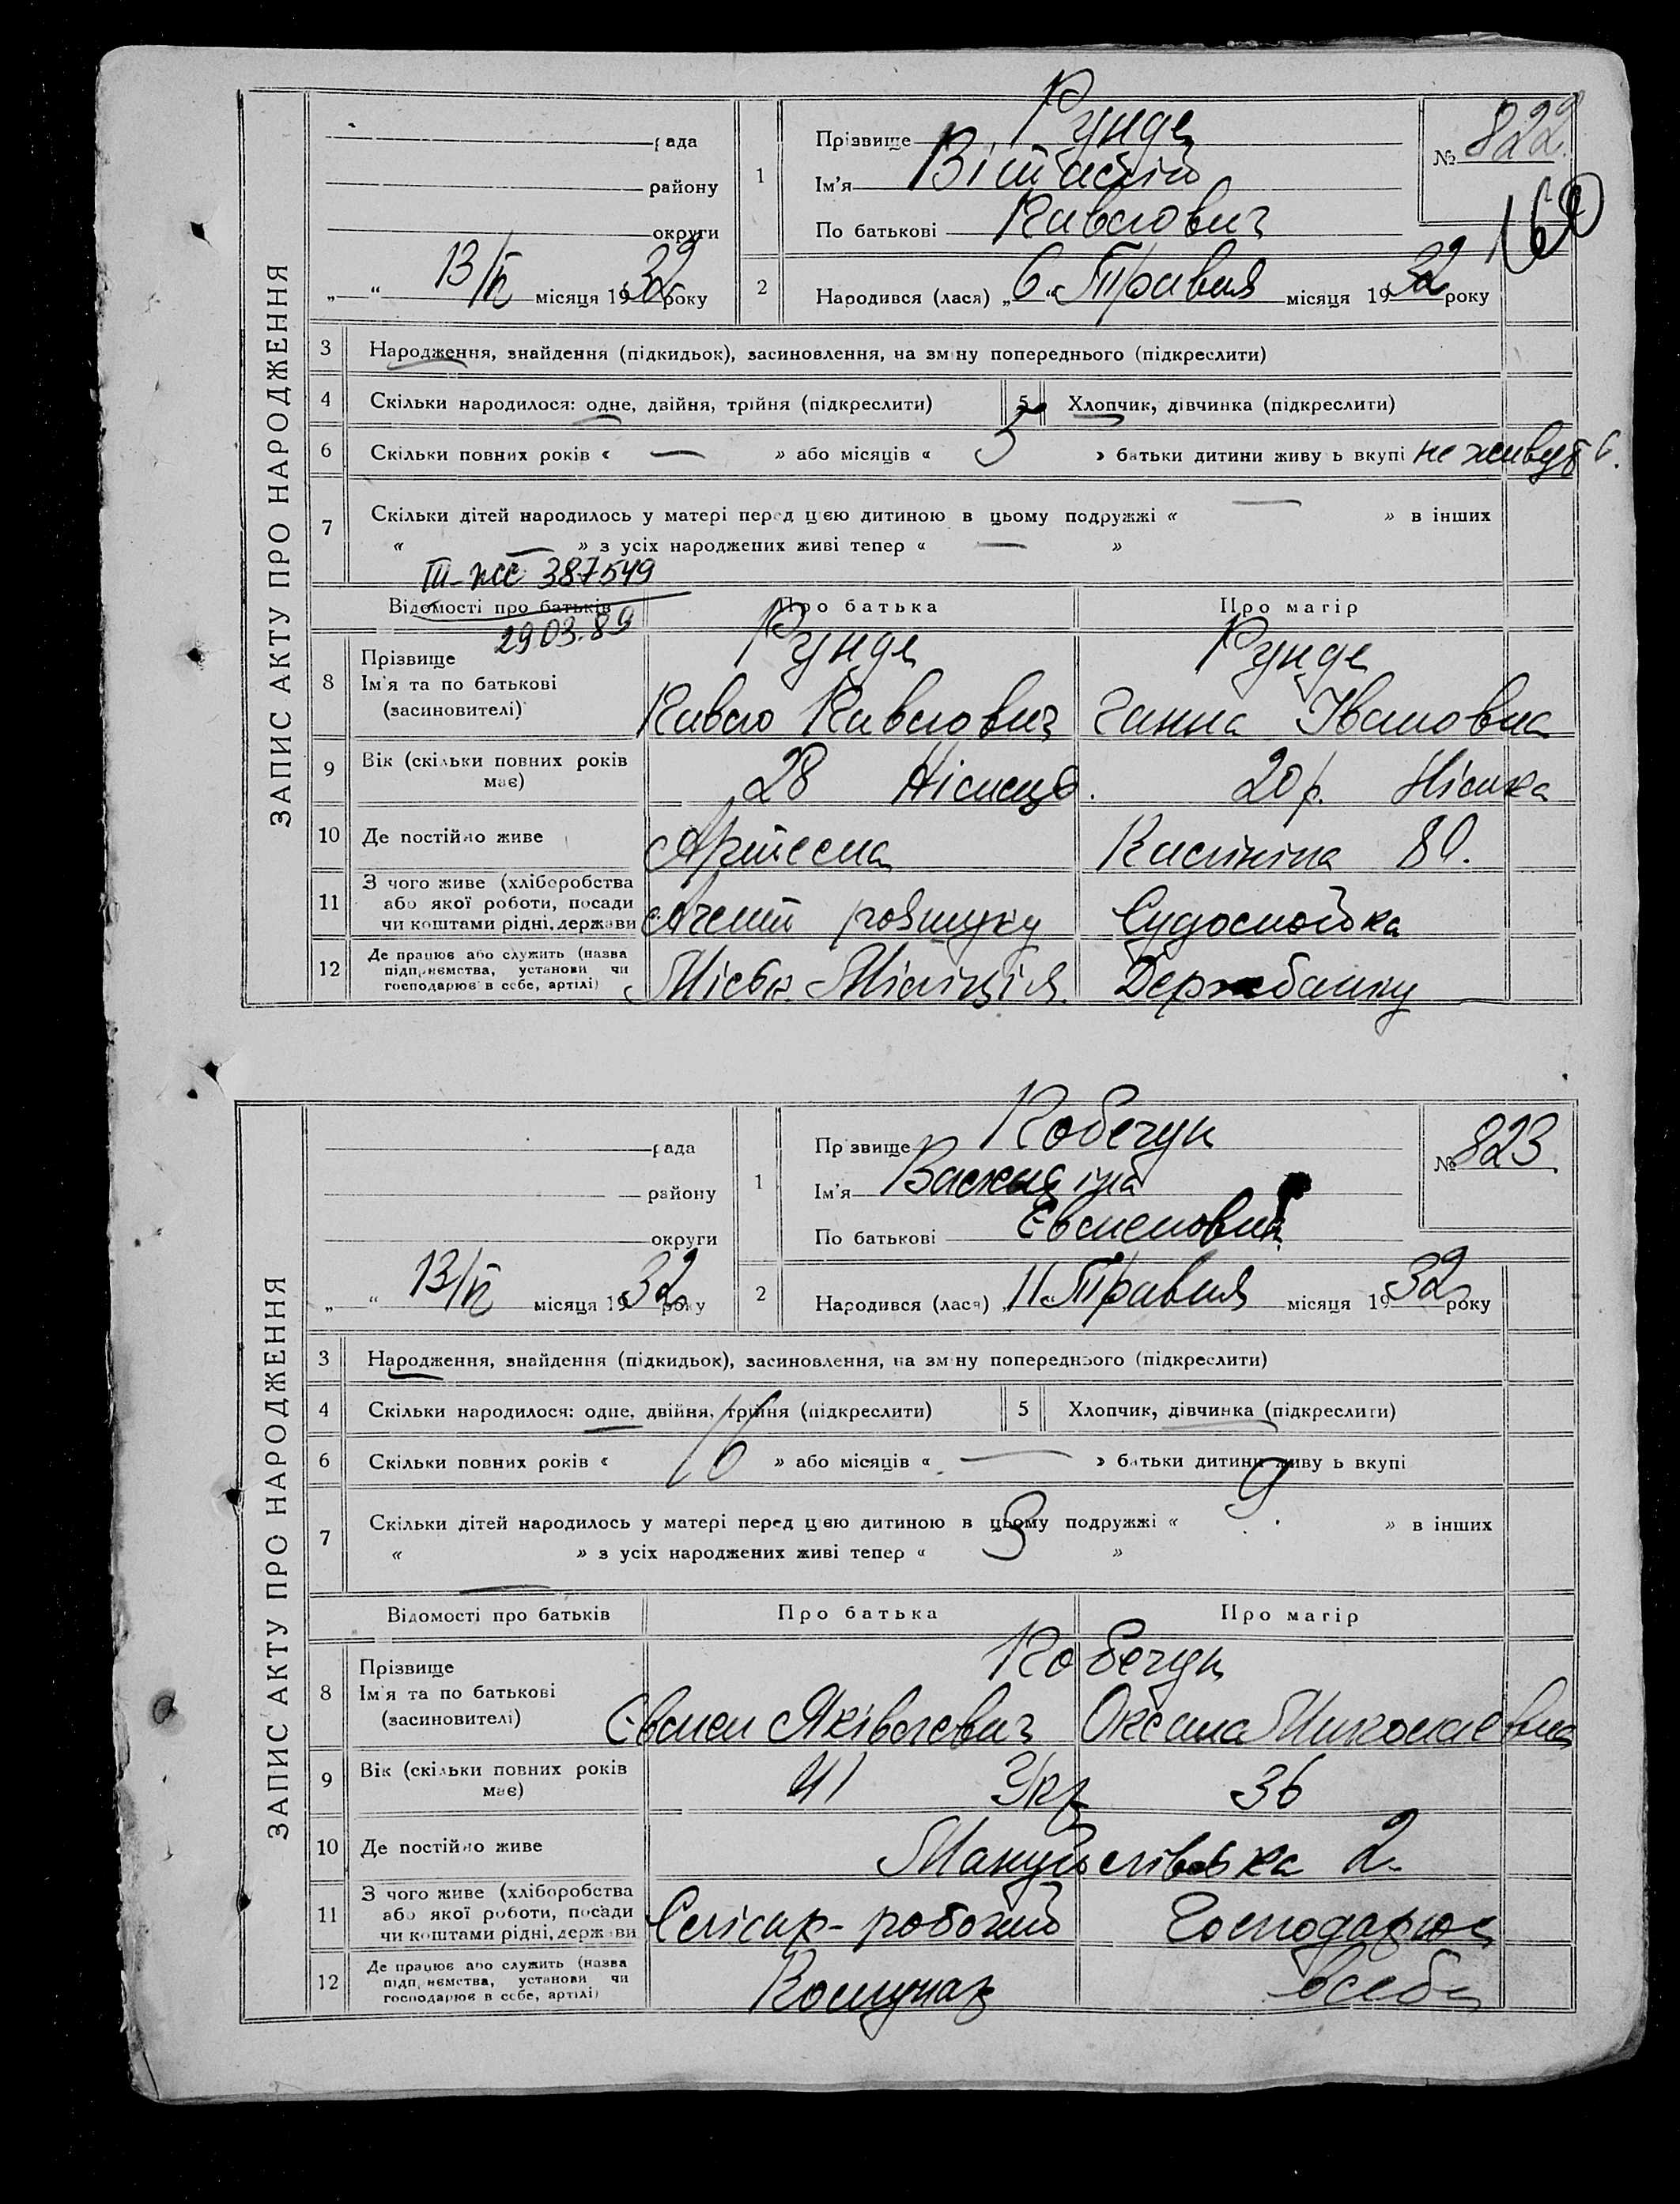 ЗАПИС АКТУ ПРО НАРОДЖЕННЯ
рада
району
округи
„ “ 13/V місяця 1932 року
1
Прізвище Рунде
Ім'я Віталій
По батькові Павлович
№ 822
2
Народився (лася) „6“ Травня місяця 1932 року
3 Народження, знайдення (підкидьок), засиновлення, на зміну попереднього (підкреслити)
4 Скільки народилося: одне, двійня, трійня (підкреслити)
5 Хлопчик, дівчинка (підкреслити)
6 Скільки повних років « — » або місяців « 5 » батьки дитини живуть вкупі не живуть
7 Скільки дітей народилось у матері перед цією дитиною в цьому подружжі « — » в інших
« — » з усіх народжених живі тепер « — »
387549
29 03.89
Відомості про батьків Про батька Про матір
8 Прізвище
Ім'я та по батькові
(засиновителі)
Рунде
Павло Павлович
Рунде
Ганна Івановна
9 Вік (скільки повних років має) 28 Німець. 20 р. Німка
10 Де постійно живе Артема Калініна 80.
11 З чого живе (хліборобства або якої роботи, посади чи коштами рідні, держави Агент розшуку
12 Де працює або служить (назва підприємства, установи чи господарює в себе, артілі) Міськ. Міліція. Держбанку
ЗАПИС АКТУ ПРО НАРОДЖЕННЯ
рада
району
округи
„ “ 13/V місяця 1932 року
1
Прізвище Кобечук
Ім'я
По батькові
№ 823
2
Народився (лася) „11“ Травня місяця 1932 року
3 Народження, знайдення (підкидьок), засиновлення, на зміну попереднього (підкреслити)
4 Скільки народилося: одне, двійня, трійня (підкреслити)
5 Хлопчик, дівчинка (підкреслити)
6 Скільки повних років « 16 » або місяців « — » батьки дитини живуть вкупі
7 Скільки дітей народилось у матері перед цією дитиною в цьому подружжі « 9 » в інших
« — » з усіх народжених живі тепер « 3 »
Відомості про батьків Про батька Про матір
8 Прізвище
Ім'я та по батькові
(засиновителі)
Кобечук
Яківлевич Оксана Миколаевна
9 Вік (скільки повних років має) 41 Укр 36
10 Де постійно живе Мануйлівська 2.
11 З чого живе (хліборобства або якої роботи, посади чи коштами рідні, держави Слісар-робочий Господарює
12 Де працює або служить (назва підприємства, установи чи господарює в себе, артілі) Комунар в себе